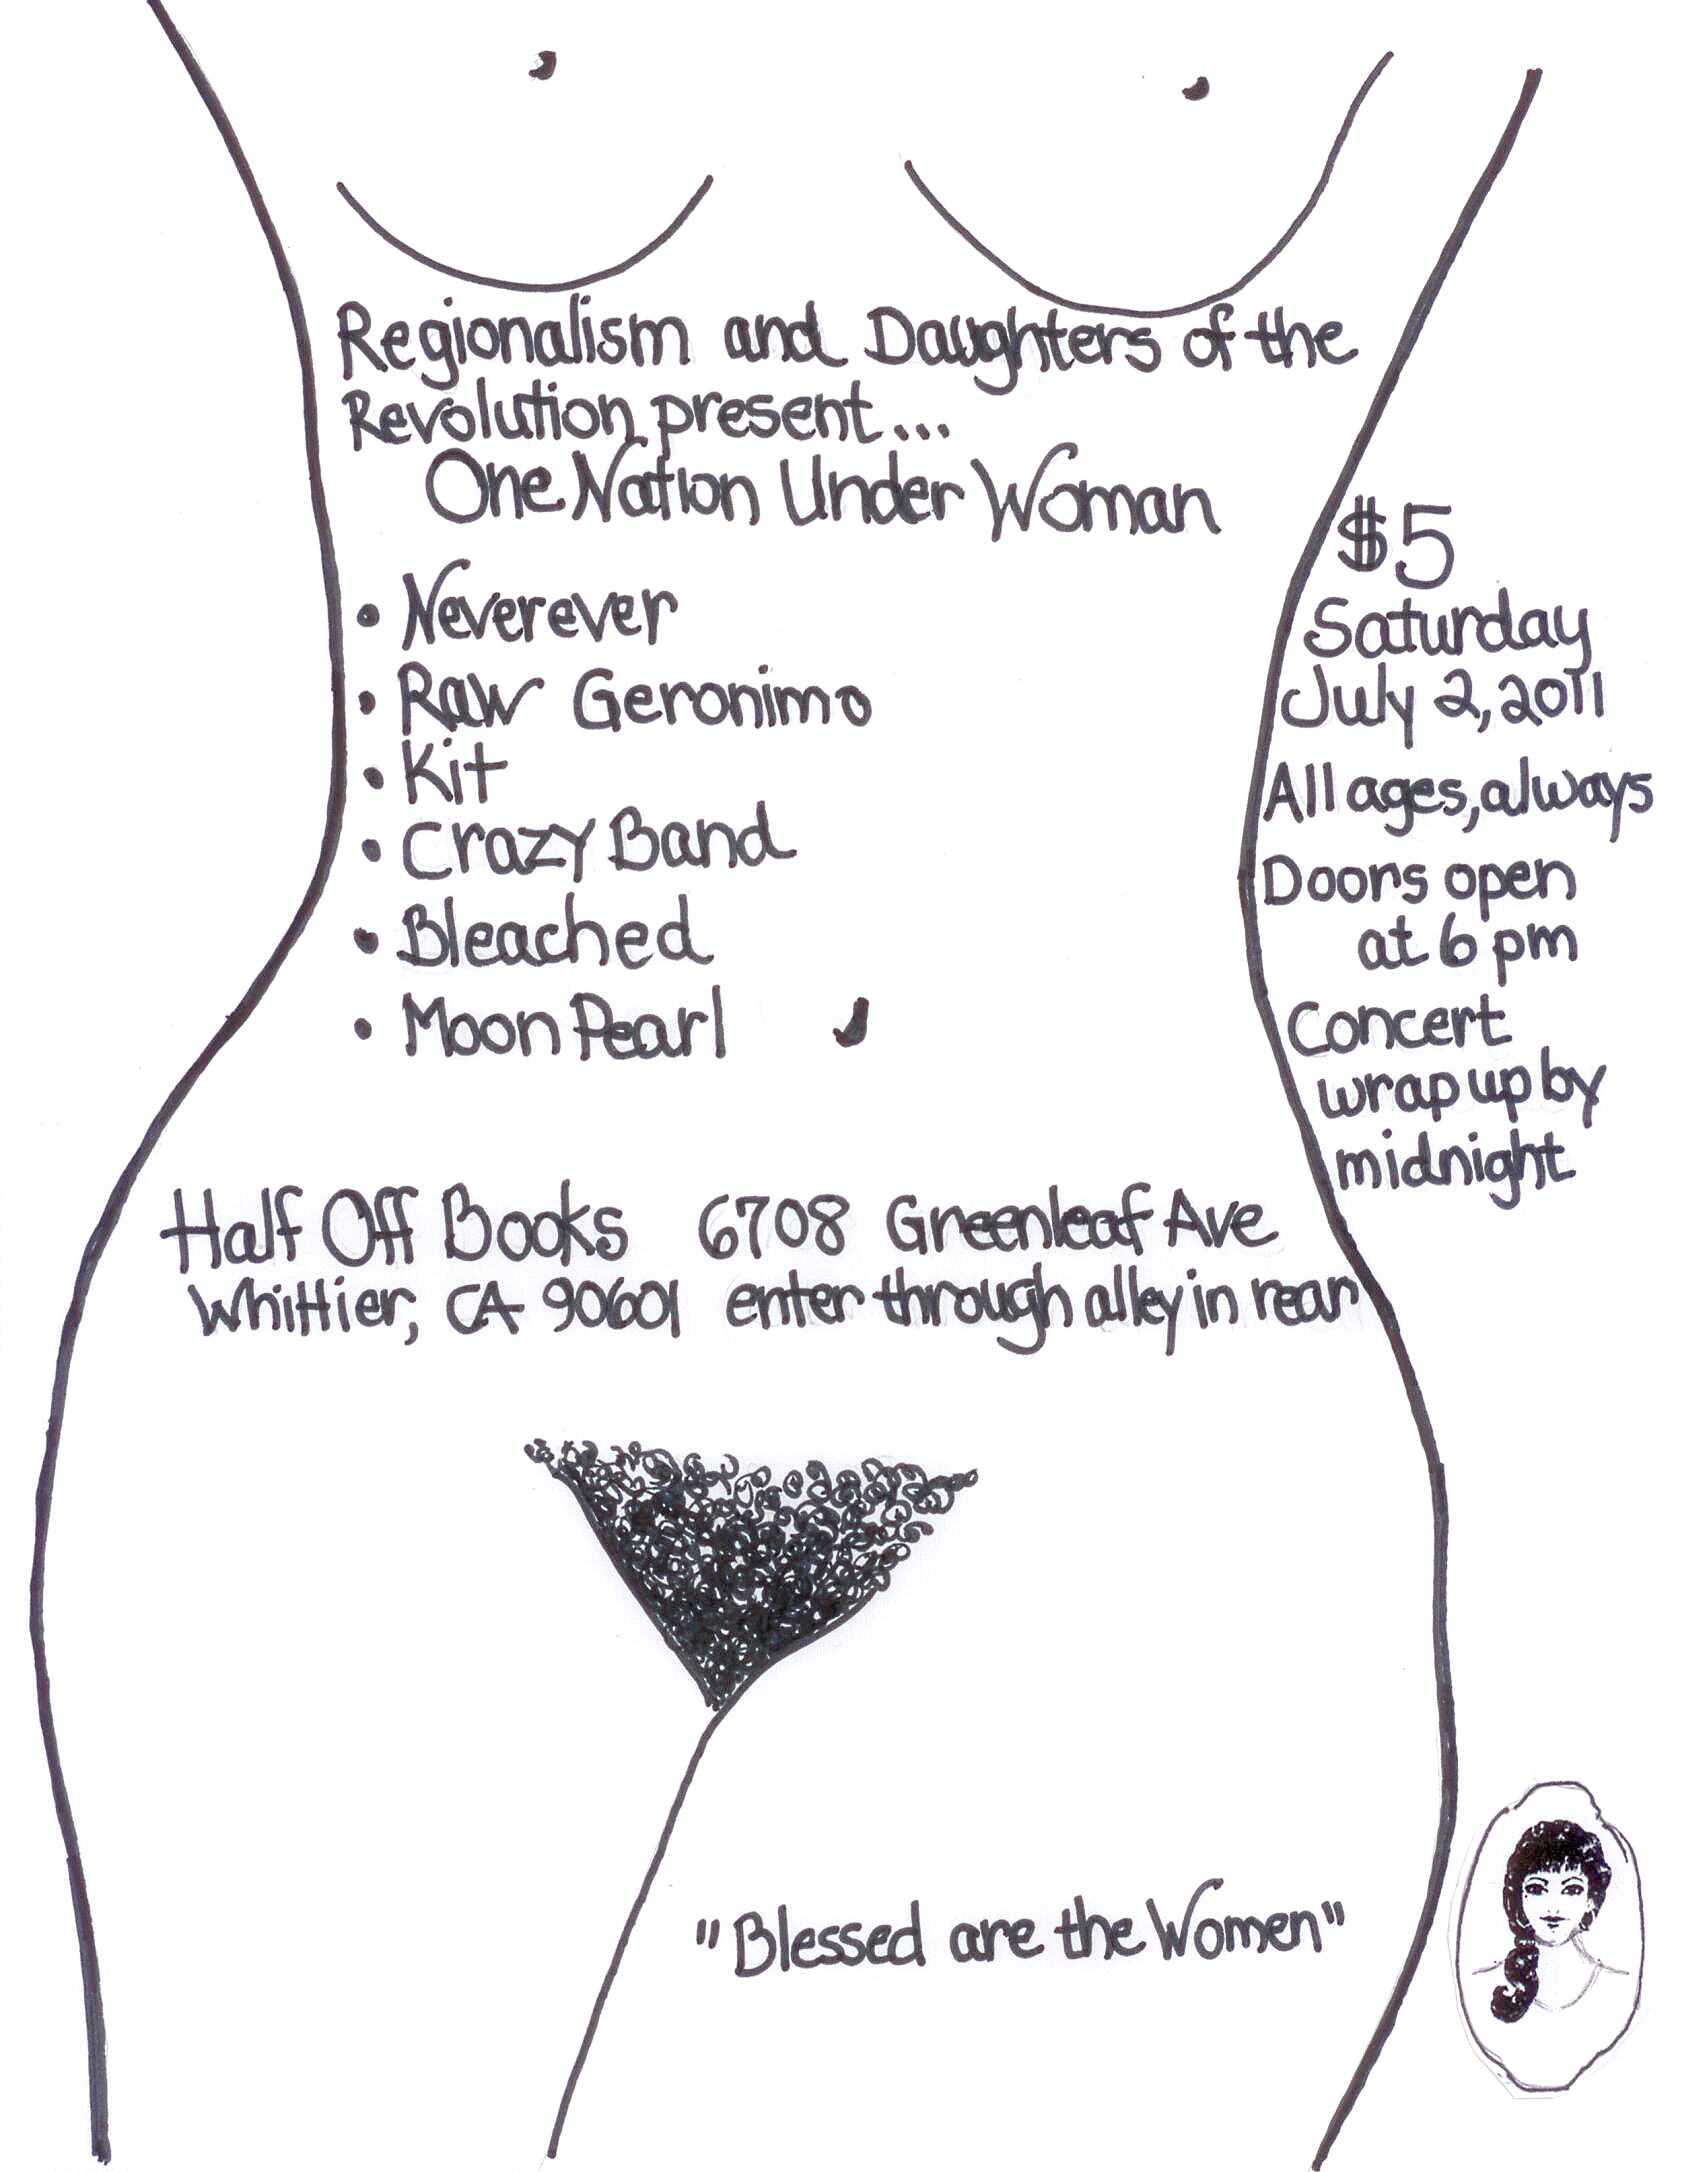 Regionalism and Daughters of the
Revolution present...
One Nation Under Woman
• Neverever
• Raw Geronimo
• Kit
• Crazy Band
• Bleached
• Moon Pearl
$5
Saturday
July 2, 2011
All ages, always
Doors open
at 6 pm
Concert
wrap up by
midnight
Half Off Books 6708 Greenleaf Ave
Whittier, CA 90601 enter through alley in rear
"Blessed are the Women"